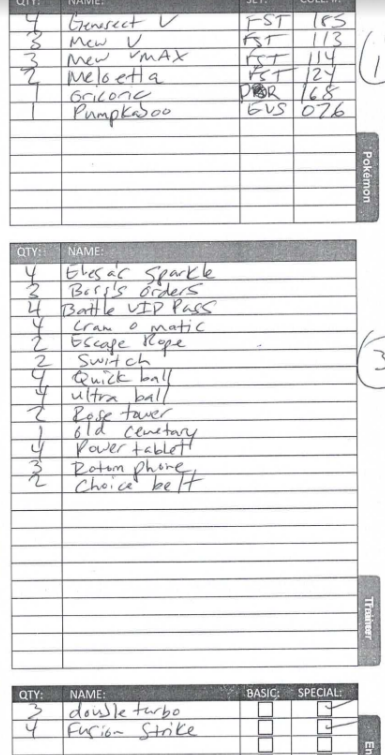 QTY: NAME: SET: COLL. #:
4 Genesect V FST 185
3 Mew V FST 113
3 Mew VMAX FST 114
2 Meloetta FST 124
1 Oricorio 168
1 Pumpkaboo EVS 076
Pokémon
QTY: NAME:
4 Elesas Sparkle
3 Boss's orders
4 Battle VIP Pass
4 Cram o matic
2 Escape Rope
2 Switch
4 Quick ball
4 ultra ball
2 Rose tower
1 old cemetary
4 Power tablet
3 Rotom phone
2 Choice belt
Trainer
QTY: NAME: BASIC: SPECIAL:
3 double turbo
4 Fusion Strike
En